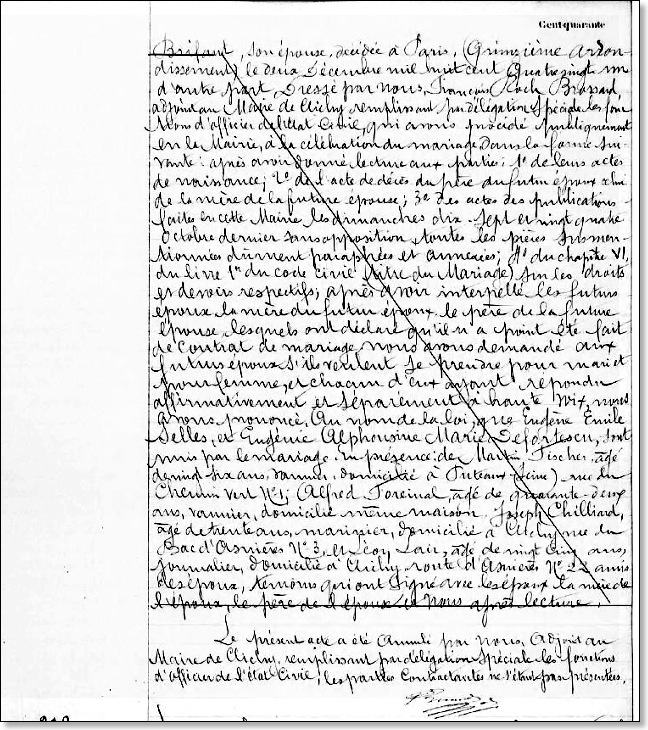 Cent quarante
Brifaut, son épouse, décédée à Paris, (Onzième Arron-
dissement) le deux Décembre mil huit cent quatre vingt un
d'autre part. Dressé par nous, François Roch
adjoint au Maire de Clichy remplissant par délégation spéciale les fonc
tions d'officier de l'état Civil, qui avons procédé publiquement
en la Mairie, à la célébration du mariage, dans la forme sui-
vante: après avoir donné lecture aux parties: 1° de leurs actes
de naissance; 2° de l'acte de décès du père du futur époux & de celui
de la mère de la future épouse; 3° des actes des publications
faites en cette Mairie les dimanches dix sept et vingt quatre
Octobre dernier sans opposition, toutes les pièces susmen-
tionnées dûment paraphées et annexées; 4° du chapitre VI,
du livre 1er du code civil (titre du Mariage) sur les droits
et devoirs respectifs; après avoir interpellé les futurs
époux la mère du futur époux le père de la future
épouse, lesquels ont déclaré qu'il n'a point été fait
de contrat de mariage, nous avons demandé aux
futurs époux s'ils veulent se prendre pour mari et
pour femme, et chacun d'eux ayant répondu
affirmativement et séparément à haute voix, nous
avons prononcé, Au nom de la loi, que Eugène Emile
Selles, et Eugénie Alphonsine Marie sont
unis par le mariage. En présence: de Martin Fischer, âgé
de vingt six ans, vannier, domicilié à Puteaux (Seine) rue du
Chemin vert N° 1; Alfred âgé de quarante-deux
ans, vannier, domicilié même maison. Joseph Chilliard,
âgé de trente ans, marinier, domicilié à Clichy rue du
Bac d'Asnières N° 3, et Léon Lair, âgé de vingt cinq ans,
journalier, domicilié à Clichy route d'Asnières N° 22 amis
des époux, témoins qui ont signé avec les époux la mère de
l'époux, le père de l'épouse et nous après lecture.
Le présent acte a été annulé par nous, Adjoint au
Maire de Clichy, remplissant par délégation spéciale les fonctions
d'officier de l'état Civil, les parties contractantes ne s'étant pas présentées.